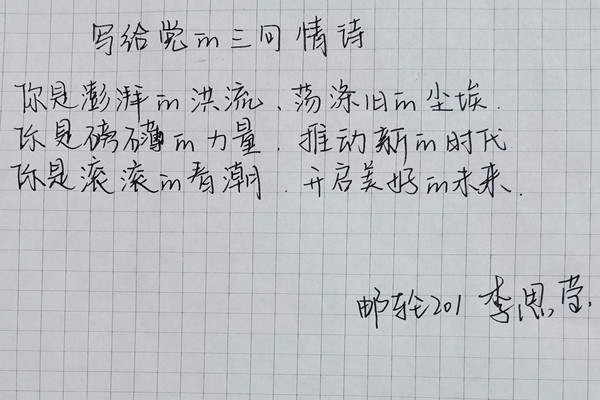 写给党的三句情诗
你是澎湃的洪流、荡涤旧的尘埃.
你是磅礴的力量.推动新的时代
你是滚滚的春潮.开启美好的未来.
邮轮201 李思莹.